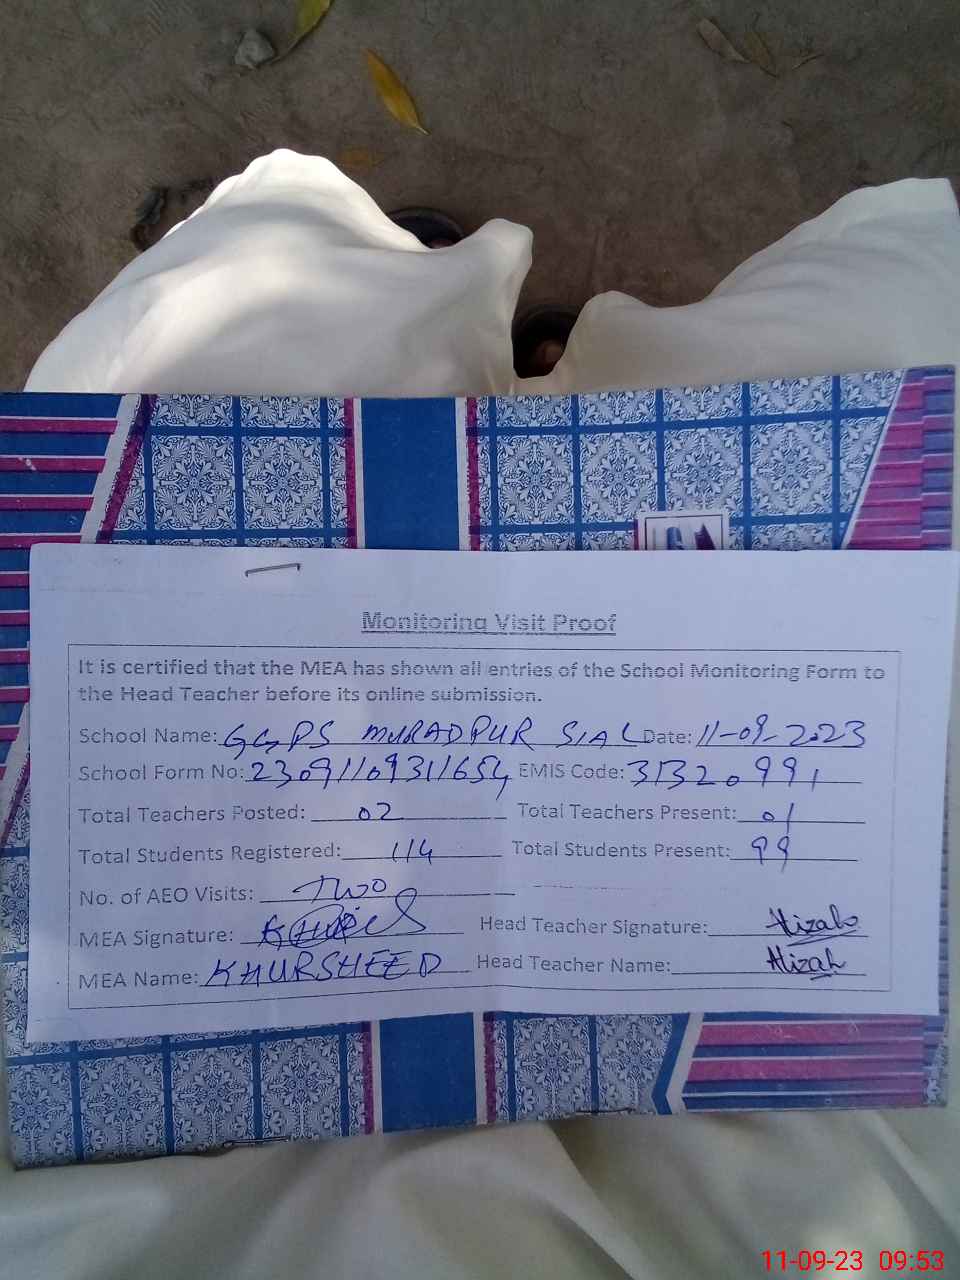 Monitoring Visit Proof
It is certified that the MEA has shown all entries of the School Monitoring Form to
the Head Teacher before its online submission.
School Name: GGPS MURADPUR SIAL Date: 11-09-2023
School Form No: 23091109311654 EMIS Code: 31320991
Total Teachers Posted: 02 Total Teachers Present: 01
Total Students Registered: 114 Total Students Present: 99
No. of AEO Visits: Two
MEA Signature: Head Teacher Signature: Alizah
MEA Name: KHURSHEED Head Teacher Name: Alizah
11-09-23 09:53